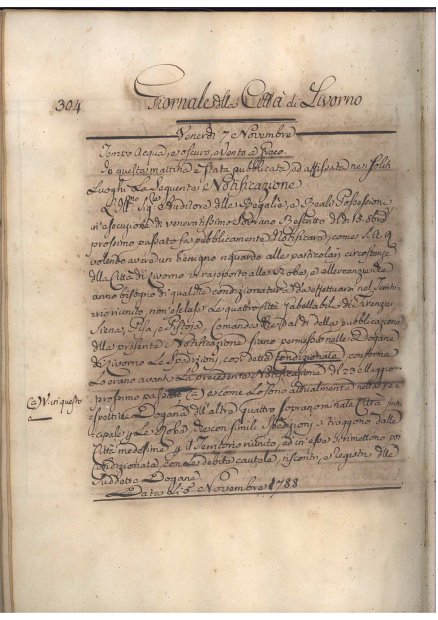 304
Giornale della Città di Livorno
Venerdì 7 Novembre
Tempo Acqua, e oscuro, e Vento a Greco.
In questa mattina è stata pubblicata, ed affissata ne' soliti
Luoghi La Seguente Notificazione
L'Ill.mo Sig.re Auditore delle Regalie, e Reale Possessioni
in esecuzione di veneratissimo Sovrano Rescritto del dì 15. 8bre
prossimo passato fa pubblicamente Notificare, come S. A. R.
volendo avere un benigno riguardo alle particolari circostanze
della Città di Livorno in rapporto alle Robe, e Mercanzie che
anno bisogno di qualche condizionatura da effettuarsi nel Territo-
rio riunito, non escluse Le quattro Città Gabellabili di Firenze,
Siena, Pisa, e Pistoia, Comanda, che dal dì della pubblicazione
della presente Notificazione siano permesse nelle Dogane
di Livorno Le Spedizioni, così dette condizionate, conforme
Lo erano avanti La precedente Notificazione di 20 Maggio
prossimo passato e come Lo sono attualmente nelle re-
spettive Dogane dell'altre quattro soprannominate Città
e Le Robe, che con simili Spedizioni si traggono dalle
Città medesime, il Territorio riunito, ed in esse si rimettono per
Condizionate, con Le debite cautele, riscontri, e Registri delle
Suddette Dogane.
Data Li 5 Novembre 1788
in questo